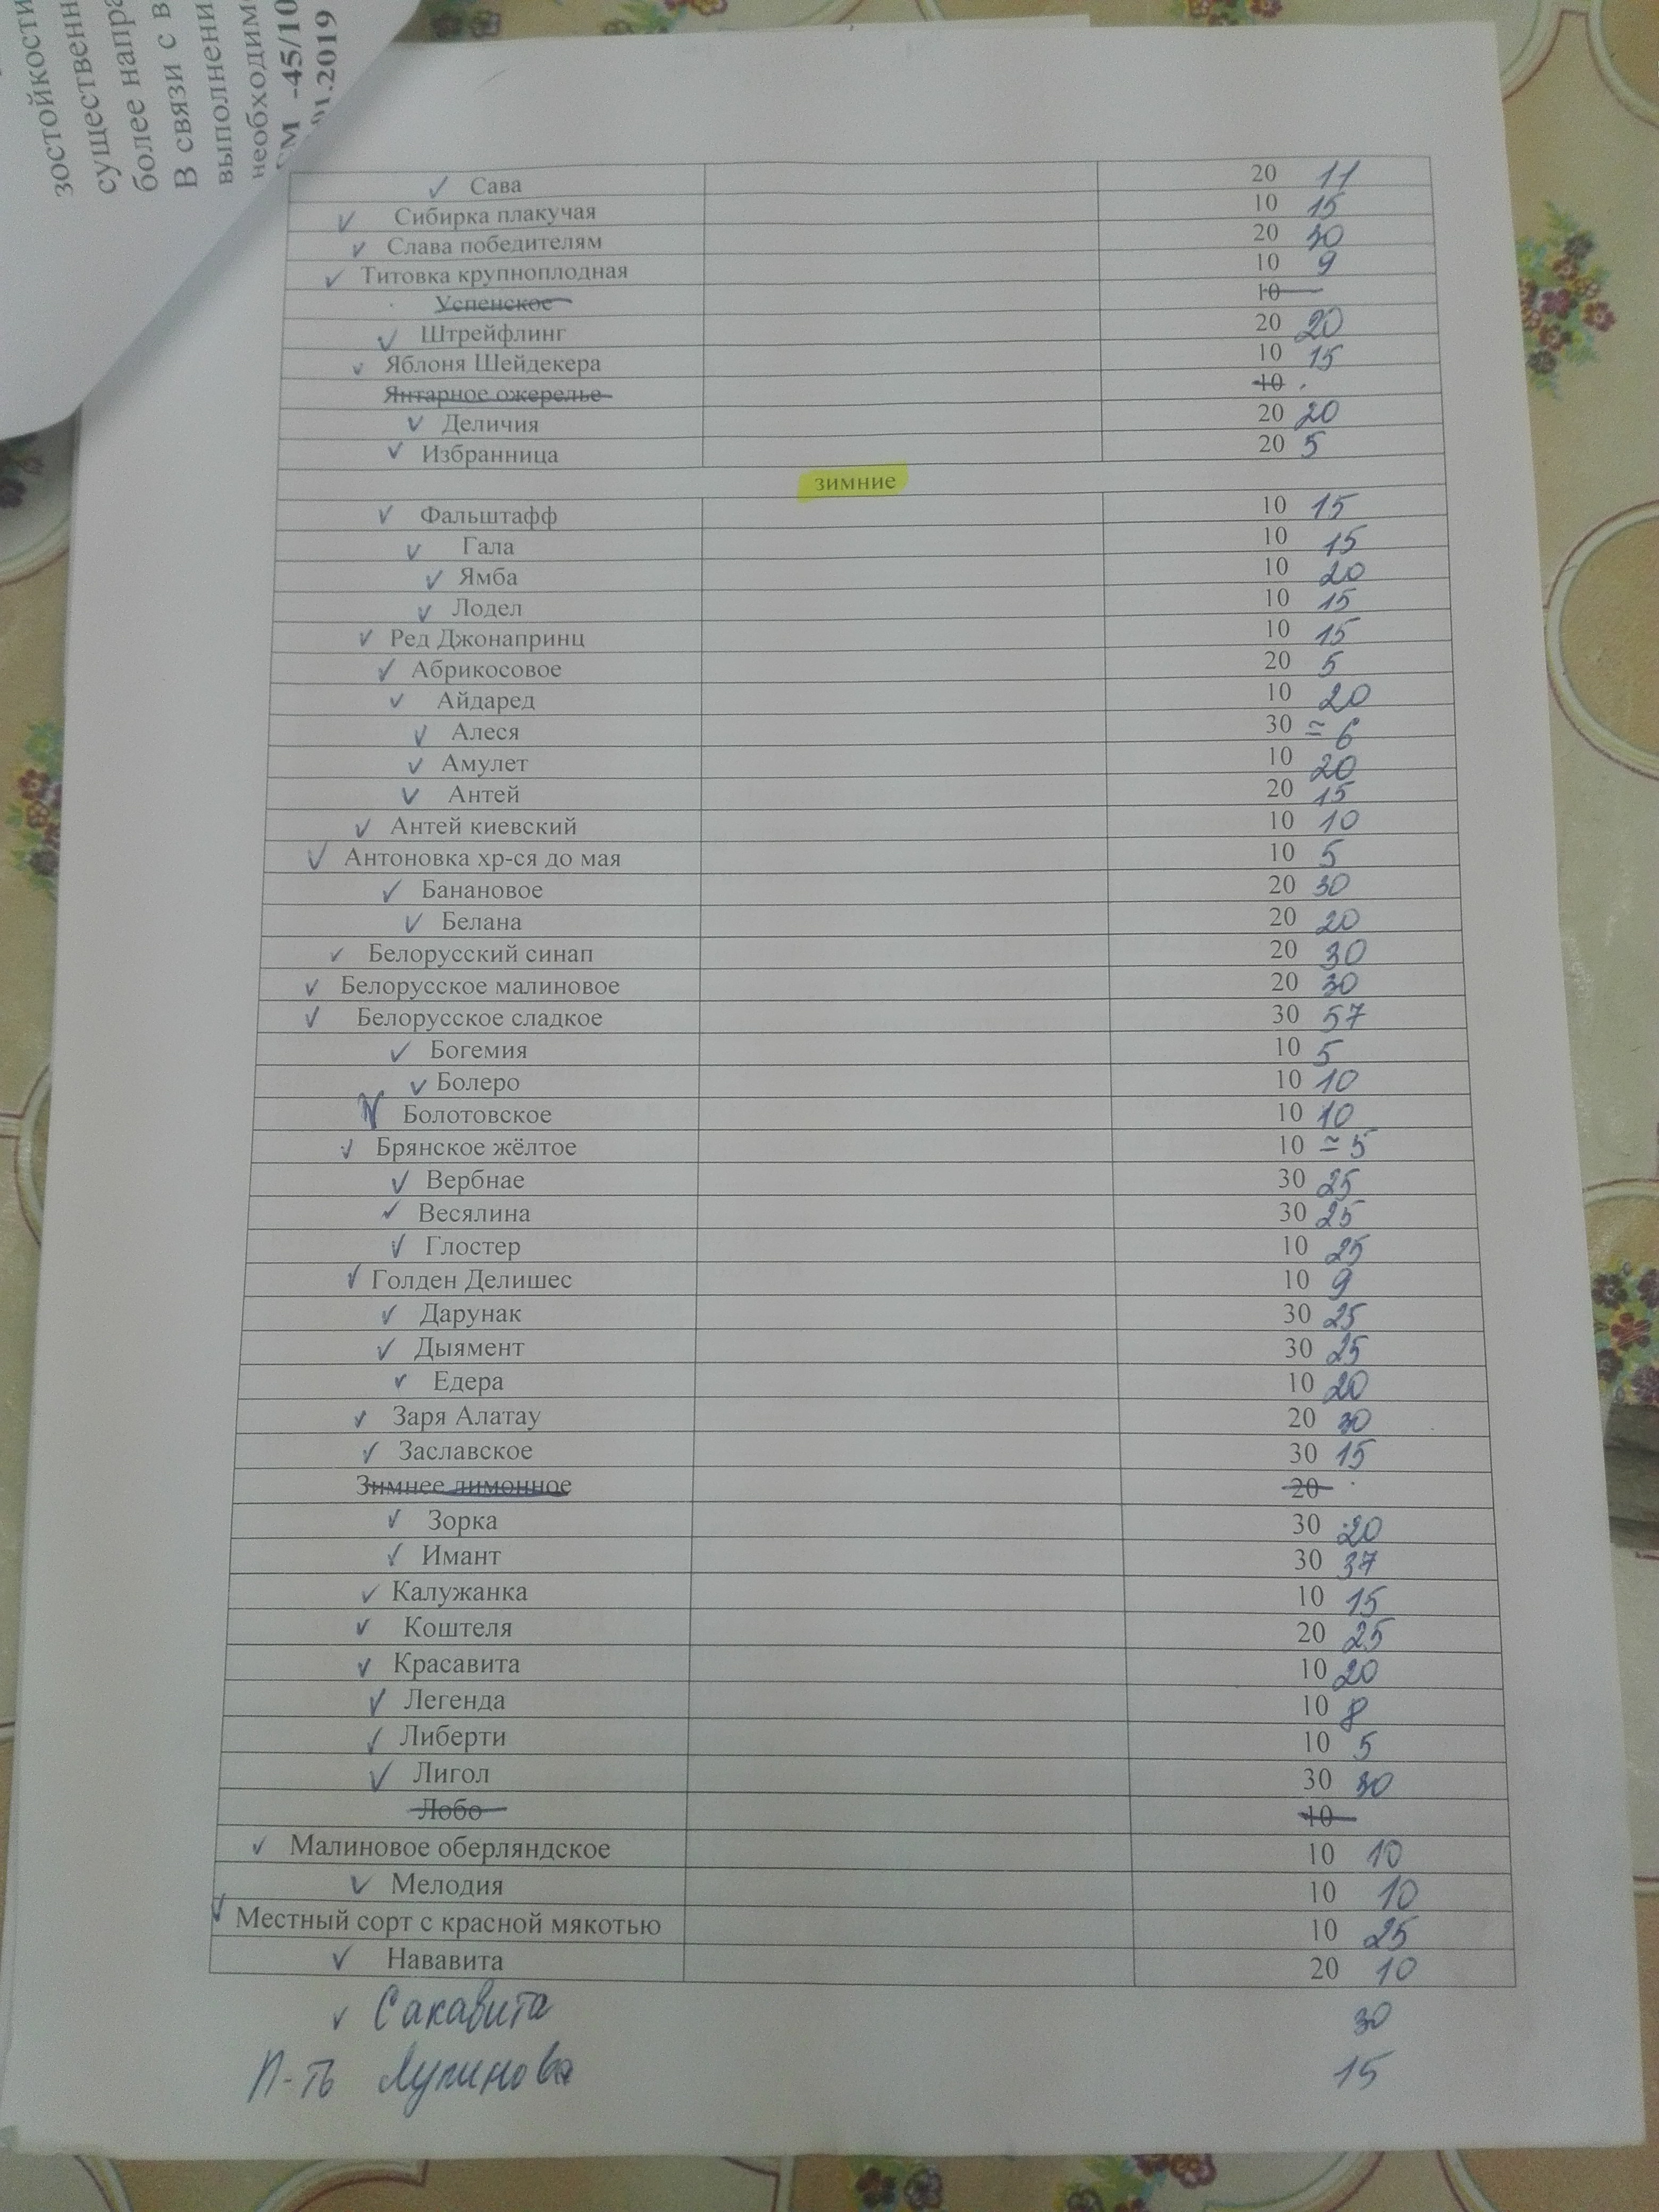 зостойкости
существенн
более напра
В связи с в
выполнени
необходим
-45/10
.2019
Сава 20 11
Сибирка плакучая 10 15
Слава победителям 20 30
Титовка крупноплодная 10 9
Успенское 10
Штрейфлинг 20 20
Яблоня Шейдекера 10 15
Янтарное ожерелье 10
Деличия 20 20
Избранница 20 5
зимние
Фальштафф 10 15
Гала 10 15
Ямба 10 20
Лодел 10 15
Ред Джонапринц 10 15
Абрикосовое 20 5
Айдаред 10 20
Алеся 30 ≃ 6
Амулет 10 20
Антей 20 15
Антей киевский 10 10
Антоновка хр-ся до мая 10 5
Банановое 20 30
Белана 20 20
Белорусский синап 20 30
Белорусское малиновое 20 30
Белорусское сладкое 30 57
Богемия 10 5
Болеро 10 10
Болотовское 10 10
Брянское жёлтое 10 ≃ 5
Вербнае 30 25
Весялина 30 25
Глостер 10 25
Голден Делишес 10 9
Дарунак 30 25
Дыямент 30 25
Едера 10 20
Заря Алатау 20 30
Заславское 30 15
Зимнее лимонное 20
Зорка 30 20
Имант 30 37
Калужанка 10 15
Коштеля 20 25
Красавита 10 20
Легенда 10 8
Либерти 10 5
Лигол 30 30
Лобо 10
Малиновое оберляндское 10 10
Мелодия 10 10
Местный сорт с красной мякотью 10 25
Нававита 20 10
Сакавита 30
П-ть Лупинова 15